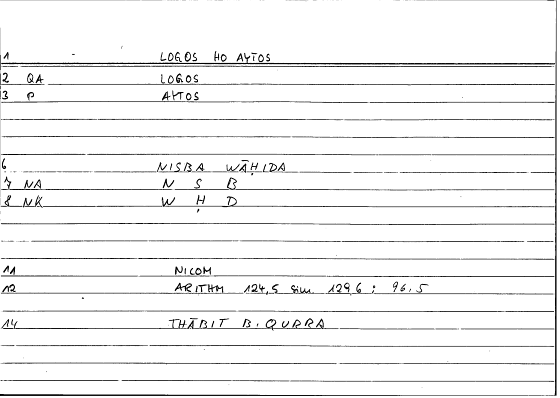 1 LOGOS HO AYTOS
2 QA LOGOS
3 P AYTOS
6 NISBA WĀḤIDA
7 NA N S B
8 NK W Ḥ D
11 NICOM
12 ARITHM 124,5 sim. 129,6 ; 96,5
14 THĀBIT B. QURRA